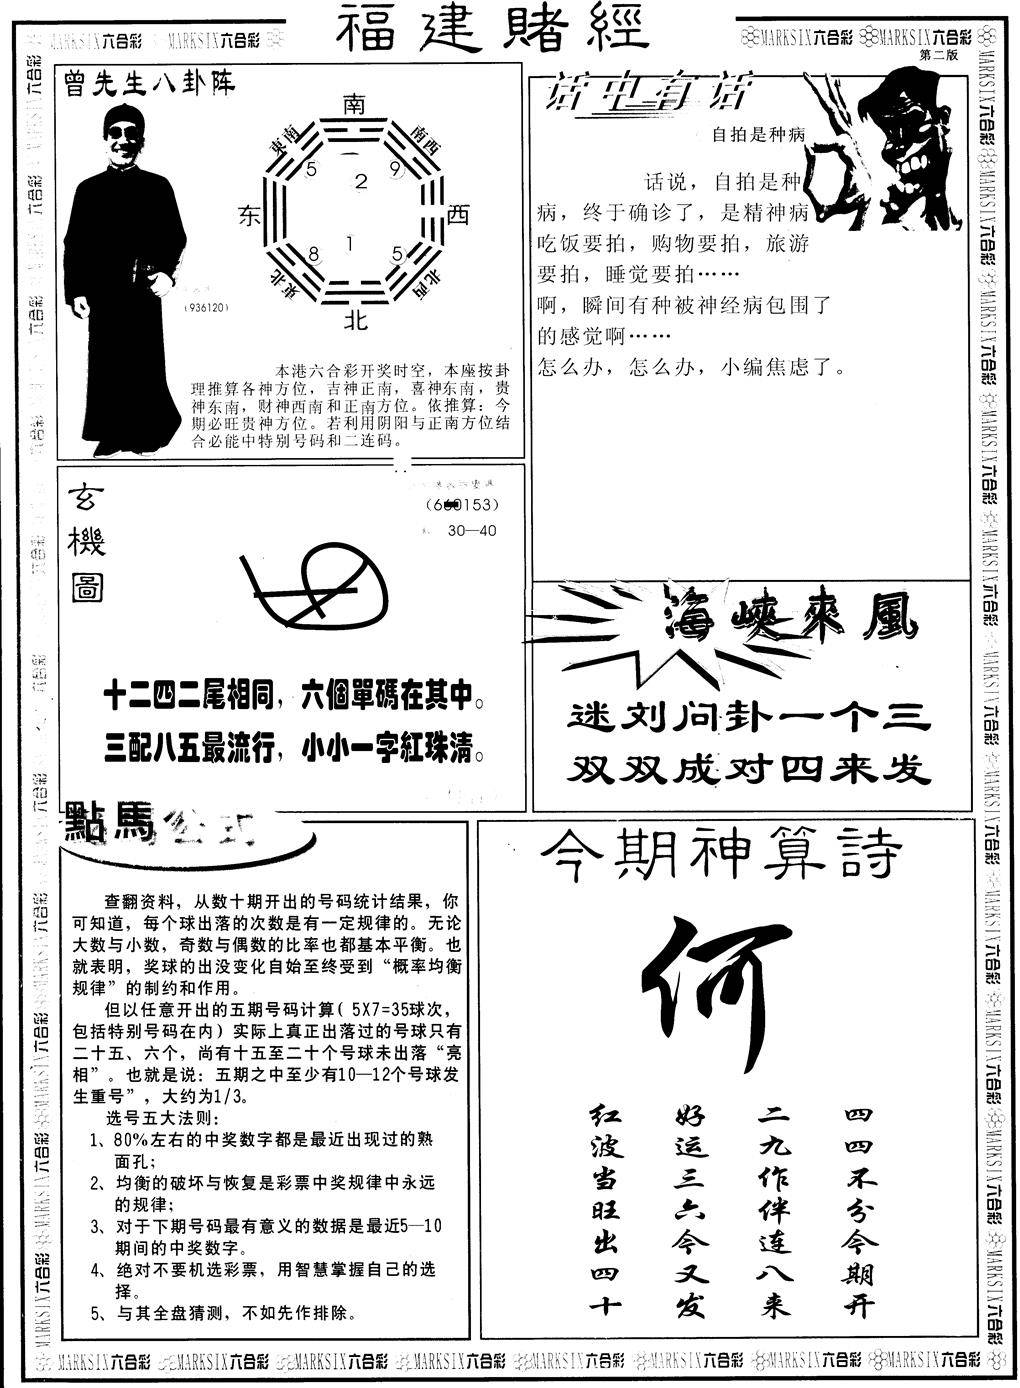 福建賭經
MARKSIX六合彩 MARKSIX六合彩
MARKSIX六合彩 MARKSIX六合彩
第二版
曾先生八卦阵
南
東南
南西
5
2
9
东
西
8
1
5
東北
北西
北
(936120)
本港六合彩开奖时空，本座按卦
理推算各神方位，吉神正南，喜神东南，贵
神东南，财神西南和正南方位。依推算：今
期必旺贵神方位。若利用阴阳与正南方位结
合必能中特别号码和二连码。
话中有话
自拍是种病
话说，自拍是种
病，终于确诊了，是精神病
吃饭要拍，购物要拍，旅游
要拍，睡觉要拍……
啊，瞬间有种被神经病包围了
的感觉啊……
怎么办，怎么办，小编焦虑了。
玄
機
圖
30—40
十二四二尾相同，六個單碼在其中。
三配八五最流行，小小一字紅珠清。
海峽來風
迷刘问卦一个三
双双成对四来发
點馬公式
查翻资料，从数十期开出的号码统计结果，你
可知道，每个球出落的次数是有一定规律的。无论
大数与小数，奇数与偶数的比率也都基本平衡。也
就表明，奖球的出没变化自始至终受到“概率均衡
规律”的制约和作用。
但以任意开出的五期号码计算( 5X7=35球次，
包括特别号码在内)实际上真正出落过的号球只有
二十五、六个，尚有十五至二十个号球未出落“亮
相”。也就是说：五期之中至少有10—12个号球发
生重号”，大约为1/3。
选号五大法则：
1、80%左右的中奖数字都是最近出现过的熟
面孔；
2、均衡的破坏与恢复是彩票中奖规律中永远
的规律；
3、对于下期号码最有意义的数据是最近5—10
期间的中奖数字。
4、绝对不要机选彩票，用智慧掌握自己的选
择。
5、与其全盘猜测，不如先作排除。
今期神算詩
何
四四不分今期开
二九作伴连八来
好运三六今又发
红波当旺出四十
MARKSIX六合彩 MARKSIX六合彩 MARKSIX六合彩 MARKSIX六合彩 MARKSIX六合彩 MARKSIX六合彩 MARKSIX六合彩 MARKSIX六合彩